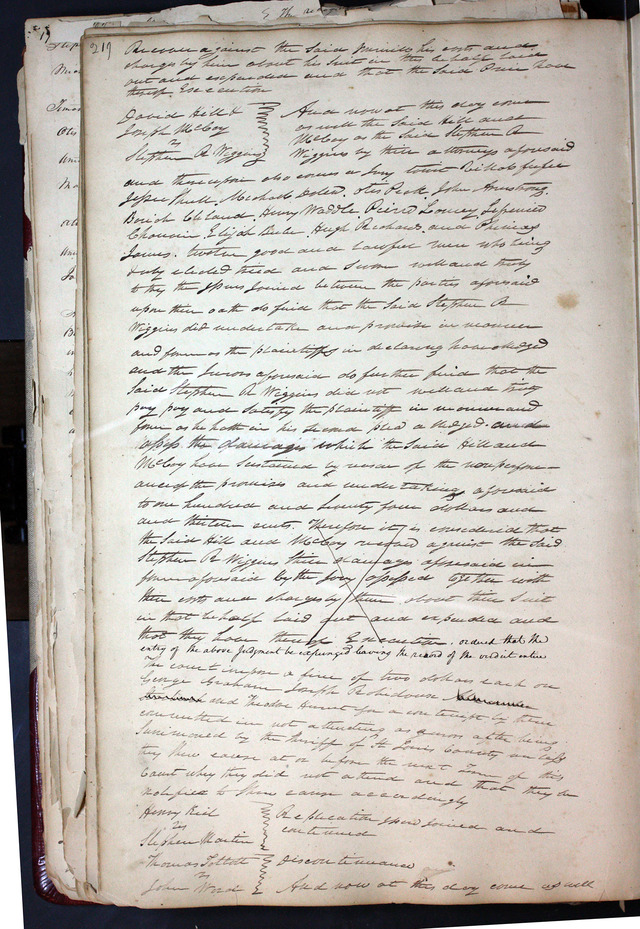 219
Recover against the Said his costs and
charges by him about his Suit in this behalf laid
out and expended and that the Said have
thereof Execution
David Hill &
Joseph McCoy
vs
Stephen R Wiggins
And now at this day come
as well the Said Hill and
McCoy as the Said Stephen R
Wiggins by their attorneys aforesaid
and thereupon also comes a Jury towit
Otis Peck John Armstrong
Henry Waddle Pierre
Chouvin Elijah Hugh Richards and Phineas
James. twelve good and lawful men who being
duly elected tried and Sworn well and truly
to try the issue Joined between the parties aforesaid
upon their oath do find that the Said Stephen R
Wiggins did undertake and promise in manner
and form as the plaintiffs in declaring have alledged
and the Jurors aforesaid do further find that the
Said Stephen R Wiggins did not well and truly
pay and Satisfy the plaintiff in manner and
form as he hath in his Second plea alledged. and
assess the damages which the Said Hill and
McCoy have Sustained by reason of the nonperform-
ance of the promises and undertaking aforesaid
to one hundred and Seventy four dollars and
and thirteen cents. Therefore it is considered that
the Said Hill and McCoy recover against the Said
Stephen R Wiggins their damages aforesaid in
form aforesaid by the Jury assessed together with
their costs and charges by them about their Suit
in that behalf laid out and expended and
that they have thereof Execution. ordered that the
entry of the above Judgment be expunged leaving the record of the verdict entire
The court impose a fine of two dollars each on
George Graham Joseph Robidoux
and Theodore Hunt for a contempt by them
committed in not attending as Jurors after being
Summoned by the Sheriff of St Louis County unless
they Shew cause at or before the next Term of this
Court why they did not attend and that they be
notified to Shew cause accordingly
Henry
vs
Stephen Martin
Replication issue Joined and
continued
Thomas
vs
John Ward
Discontinuance
And now at this day come as well